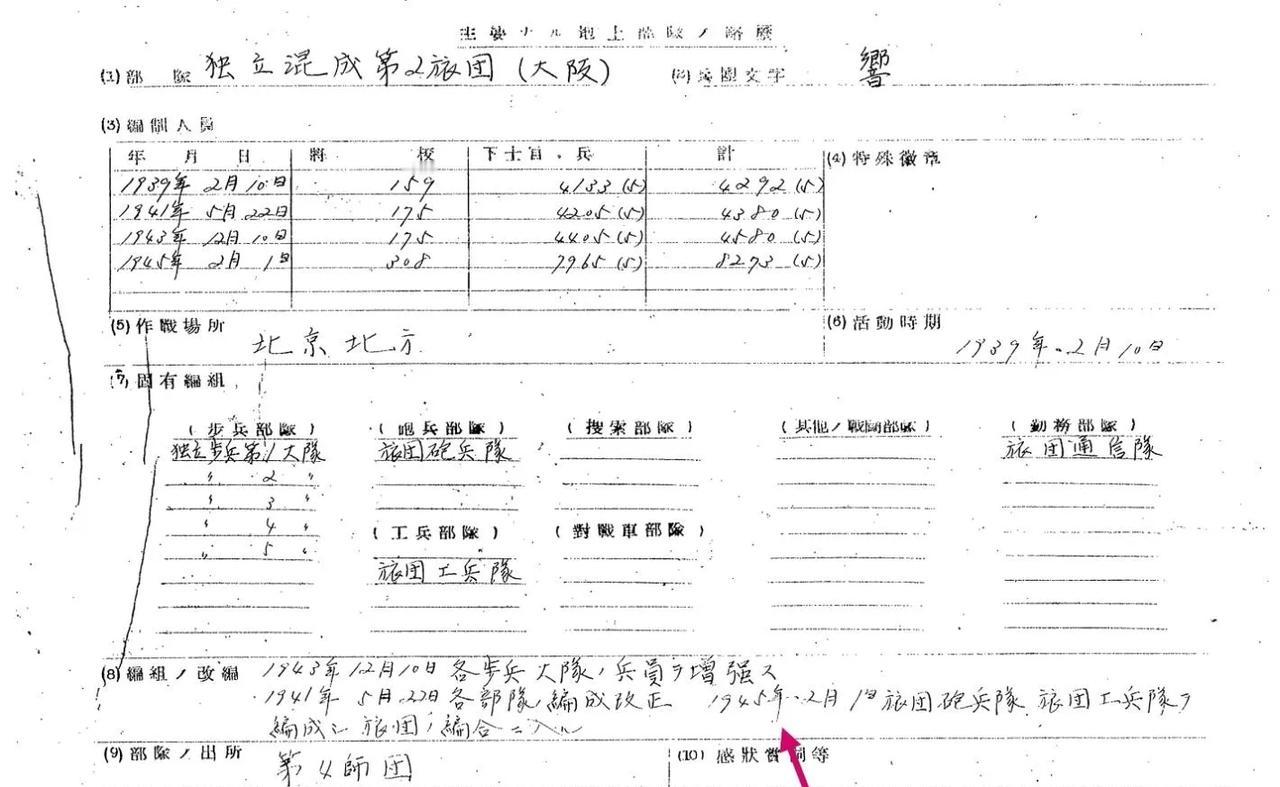 主要ナル地上部隊ノ略歴
(1)部 隊 独立混成第2旅団(大阪) (2)兵團文字 響
(3)編制人員
年 月 日 將 校 下士官、兵 計 (4)特殊徽章
1939年 2月10日 159 4133(5) 4292(5)
1941年 5月22日 175 4205(5) 4380(5)
1943年 12月10日 175 4405(5) 4580(5)
1945年 2月 1日 308 7965(5) 8273(5)
(5)作戰場所 (6)活動時期
北京北方 1939年.2月10日
(7)固有編組
(步兵部隊) (砲兵部隊) (搜索部隊) (其他ノ戰鬪部隊) (勤務部隊)
独立歩兵第1大隊 旅団砲兵隊 旅団通信隊
〃 2 〃
〃 3 〃
〃 4 〃
(工兵部隊) (對戰車部隊)
〃 5 〃
旅団工兵隊
(8)編組ノ改編 1943年12月10日各歩兵大隊ノ兵員ヲ増强ス
1941年 5月22日各部隊ノ編成改正 1945年.2月1日旅団砲兵隊 旅団工兵隊ヲ
編成シ旅団ノ編合ニ入ル
(9)部隊ノ出所 (10)感狀賞詞等
第4師団